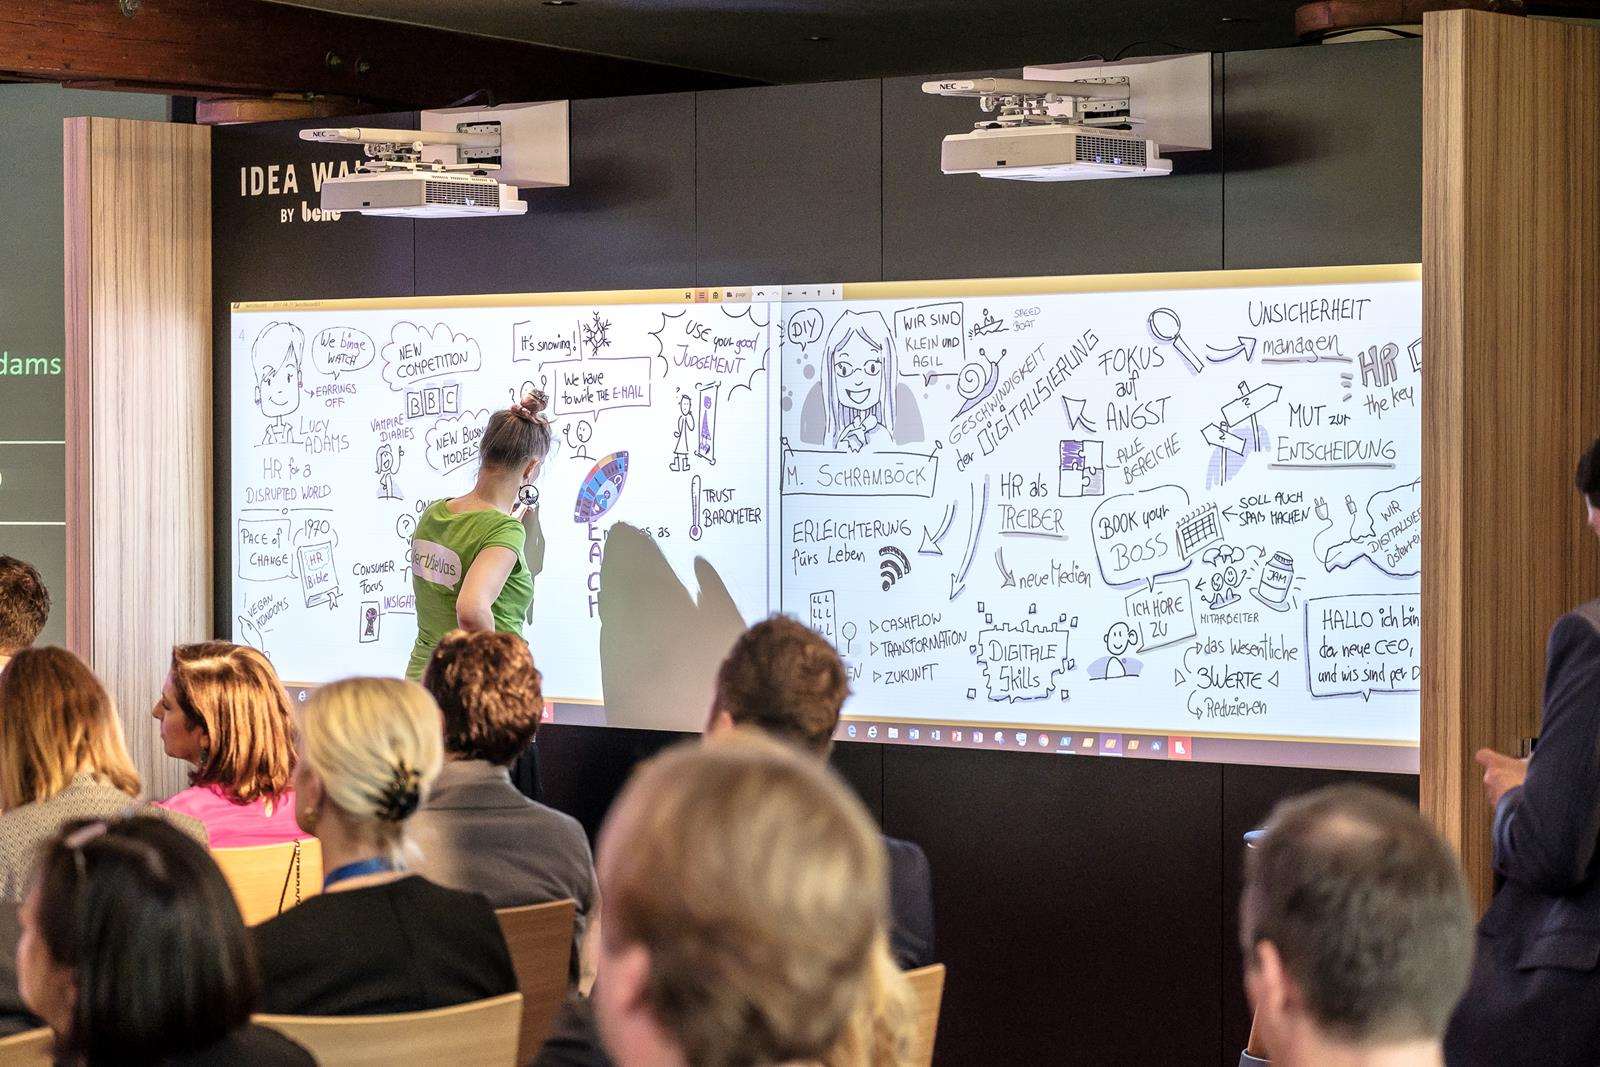 dams
IDEA
BY bene
NEC
NEC
4
We binge
WATCH
EARRINGS
OFF
LUCY
ADAMS
HR for a
DISRUPTED WORLD
PACE of
CHANGE
1970
HR
Bible
VEGAN
KONDOMS
NEW
COMPETITION
BBC
VAMPIRE
DIARIES
NEW
MODELS
CONSUMER
FOCUS
It's snowing!
We have
to write THE E-MAIL
USE your good
JUDGEMENT
TRUST
BAROMETER
as
EACH
DIY
WIR SIND
KLEIN und
AGIL
SPEED
BOAT
M. SCHRAMBÖCK
GESCHWINDIGKEIT
der DIGITALISIERUNG
ERLEICHTERUNG
fürs Leben
CASHFLOW
TRANSFORMATION
ZUKUNFT
HR als
TREIBER
neue Medien
DIGITALE
Skills
FOKUS
auf
ANGST
ALLE
BEREICHE
UNSICHERHEIT
managen
HR
the key
MUT zur
ENTSCHEIDUNG
BOOK your
BOSS
SOLL AUCH
SPAß MACHEN
WIR
JAM
MITARBEITER
ICH HÖRE
ZU
das Wesentliche
3 WERTE
Reduzieren
HALLO ich bin
der neue CEO,
und wir sind per D